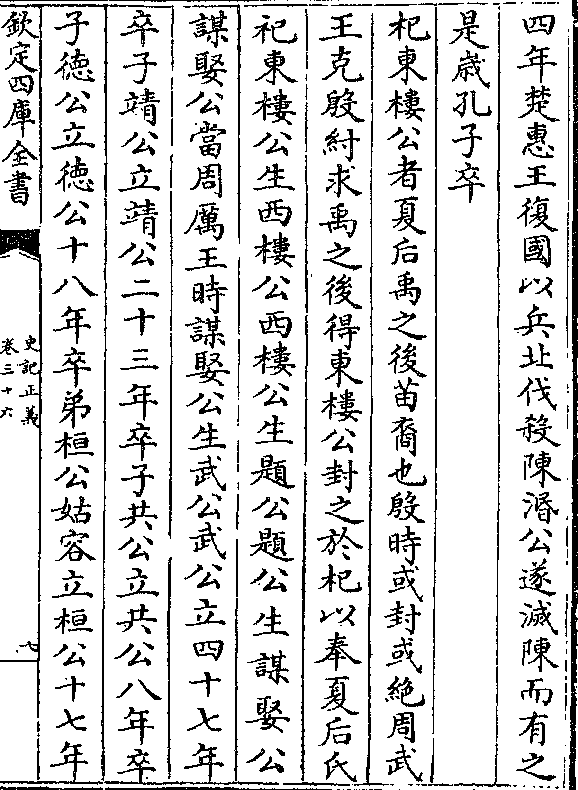 四年楚惠王復國以兵北伐殺陳湣公遂滅陳而有之
是歳孔子卒
杞東樓公者夏后禹之後苗裔也殷時或封或絶周武
王克殷紂求禹之後得東樓公封之於杞以奉夏后氏
祀東樓公生西樓公西樓公生題公題公生謀娶公
謀娶公當周厲王時謀娶公生武公武公立四十七年
卒子靖公立靖公二十三年卒子共公立共公八年卒
子徳公立徳公十八年卒弟桓公姑容立桓公十七年
欽定四庫全書
史記正義
卷三十六
八